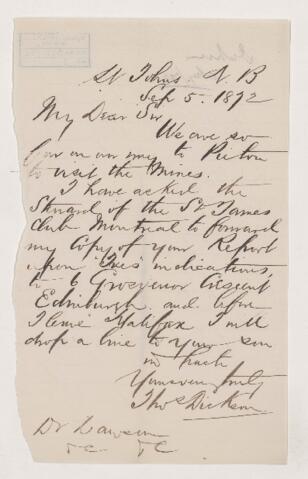 St Johns N. B
Sep 5. 1872
My Dear Sir
We are so
far on our way to Pictou
to visit the Mines.
I have asked the
Steward of the St James
Club Montreal to forward
my Copy of your Report
upon indications,
to 6 Grosvenor Crescent
Edinburgh and before
I leave Halifax I will
drop a line to your son
in haste
Yours very truly
Thos Dickson
Dr Dawson
&c &c